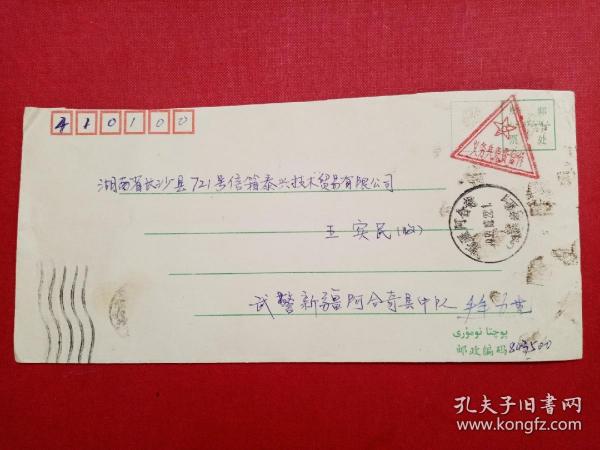 410100
邮票
处
义务兵免费信件
湖南省长沙县721号信箱泰兴技术贸易有限公司
王实民(收)
武警新疆阿合奇县中队
پوچتا نومۇرى
邮政编码843500
孔夫子旧书网
www.kongfz.com